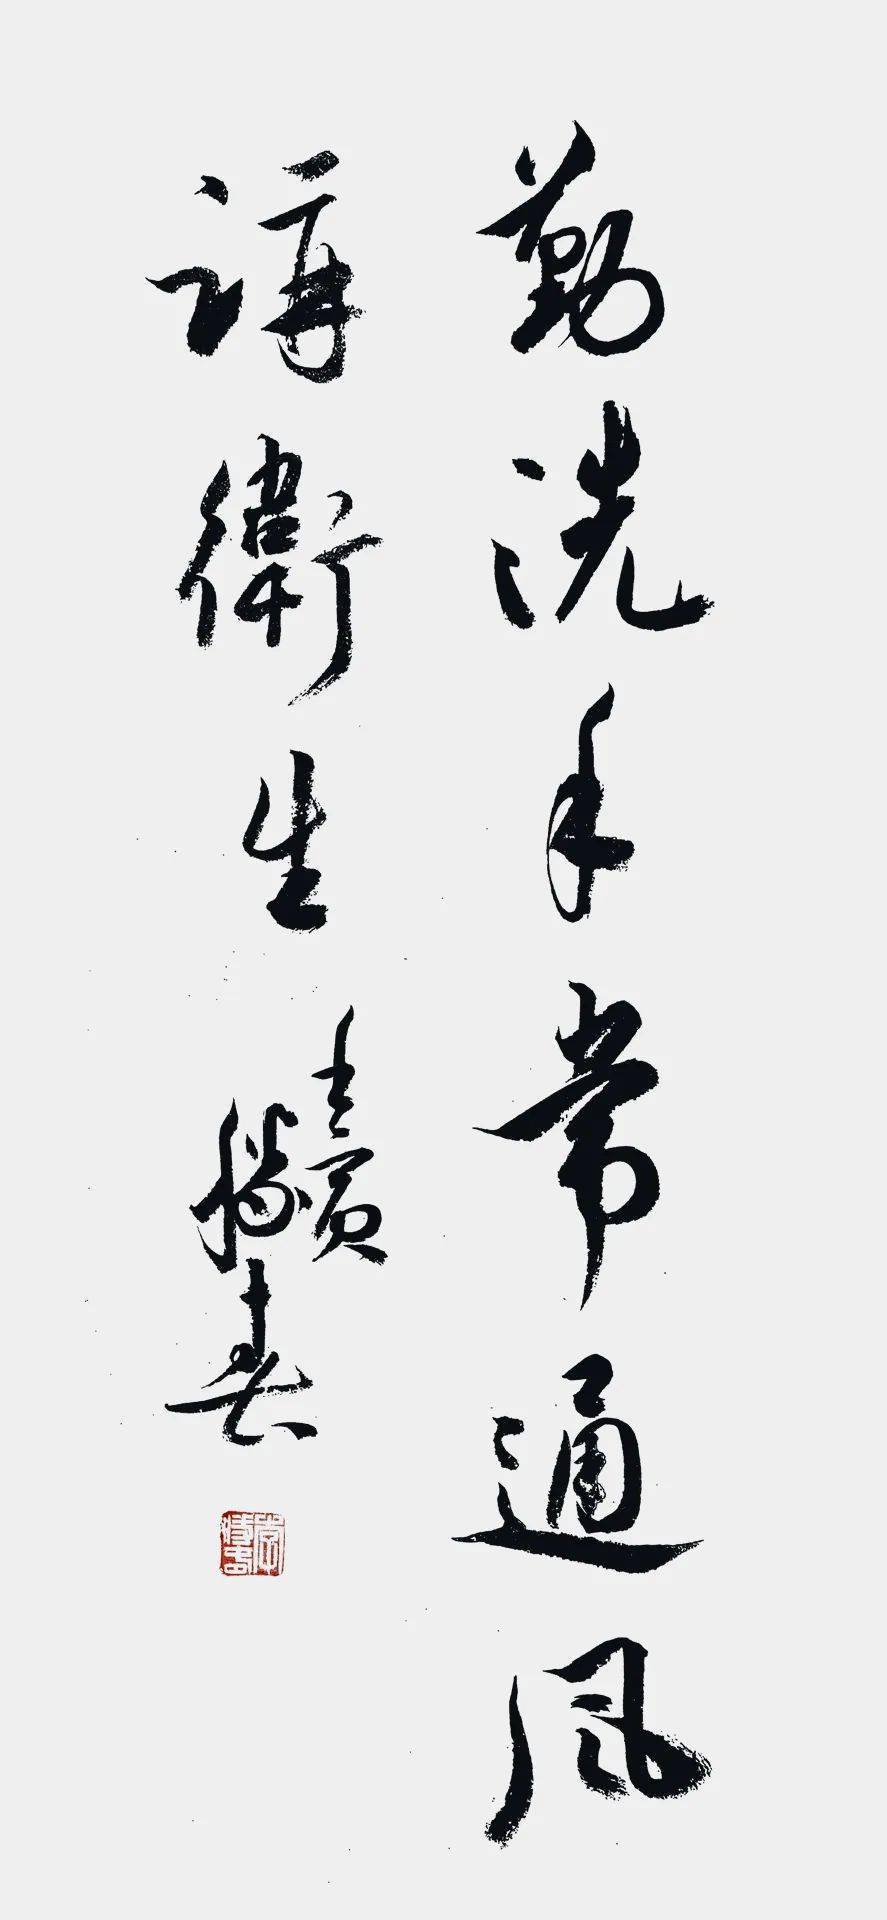 勤洗手常通風
講衛生
壬寅
勝春